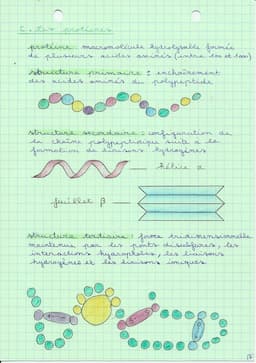 C. Les protéines
protéine : macromolécule hydrolysable formée
de plusieurs acides aminés (entre 100 et 1000)
structure primaire : enchaînement
des acides aminés du polypeptide
structure secondaire : configuration de
la chaîne polypeptidique suite à la
formation de liaisons hydrogènes
hélice α
feuillet β
structure tertiaire : forme tridimensionnelle
maintenue par les ponts disulfures, les
interactions hydrophobes, les liaisons
hydrogènes et les liaisons ioniques.